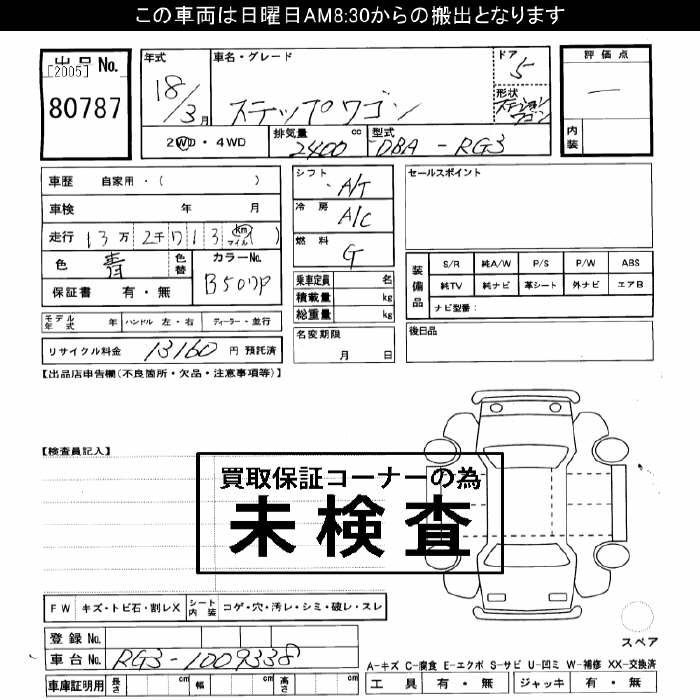 この車両は日曜日AM8:30からの搬出となります
出品No.
[2005]
80787
年式
18/3月
車名・グレード
ステップワゴン
ドア
5
形状
ステーションワゴン
評価点
—
内装
2WD・4WD
排気量
2400cc
型式
DBA-RG3
車歴 自家用・( )
車検 年 月
走行 13万2千 km マイル
色 青
色替
カラーNo.
B507P
保証書 有・無
シフト A/T
冷房 A/C
燃料 G
乗車定員 名
積載量 kg
総重量 kg
名変期限
月 日
セールスポイント
装備品
S/R 純A/W P/S P/W ABS
純TV 純ナビ 革シート 外ナビ エアB
ナビ型番:
後日品
モデル年式 年 ハンドル 左・右 ディーラー・並行
リサイクル料金 13160 円 預託済
【出品店申告欄(不良箇所・欠品・注意事項等)】
【検査員記入】
買取保証コーナーの為
未検査
FW キズ・トビ石・割レX シート内装 コゲ・穴・汚レ・シミ・破レ・スレ
登録No.
車台No. RG3-1009338
車庫証明用 長さ cm 幅 cm 高さ cm
スペア
A-キズ C-腐食 E-エクボ S-サビ U-凹ミ W-補修 XX-交換済
工具 有・無 ジャッキ 有・無